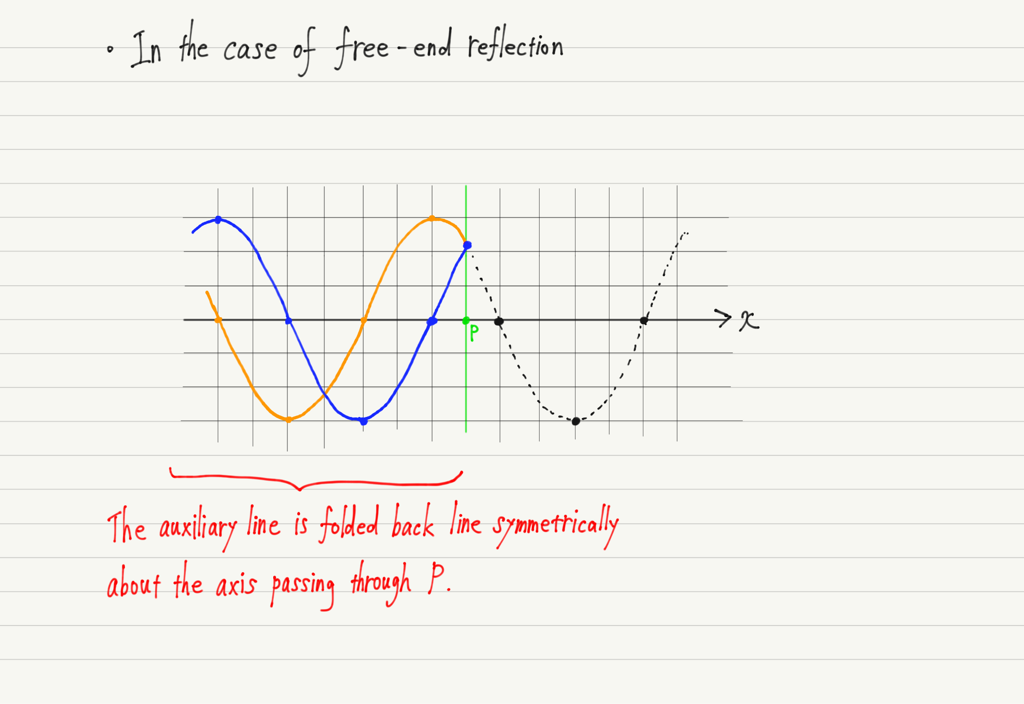 • In the case of free-end reflection
x
P
The auxiliary line is folded back line symmetrically
about the axis passing through P.